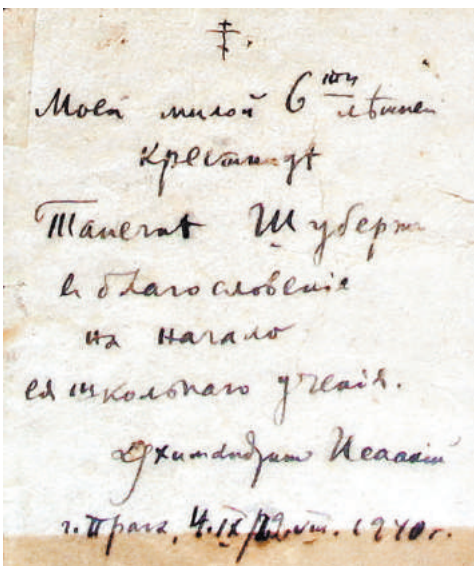 Моей милой 6ти лѣтней
крестницѣ
Танечкѣ Шуберт
въ благословенiе
на начало
ея школьнаго ученiя.
Архимандрит Исаакiй
г. Прага, 4.IX/22.VIII. 1940 г.